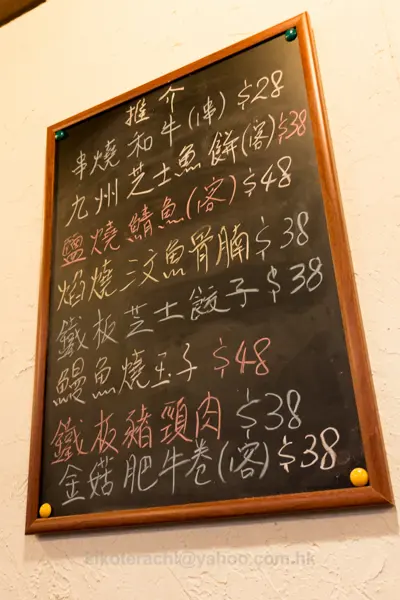 推介
串燒和牛(串) $28
九州芝士魚餅(客) $38
鹽燒鯖魚(客) $48
焰燒三文魚骨腩 $38
鐵板芝士餃子 $38
鰻魚燒玉子 $48
鐵板豬頸肉 $38
金菇肥牛卷(客) $38
kikoterachi@yahoo.com.hk